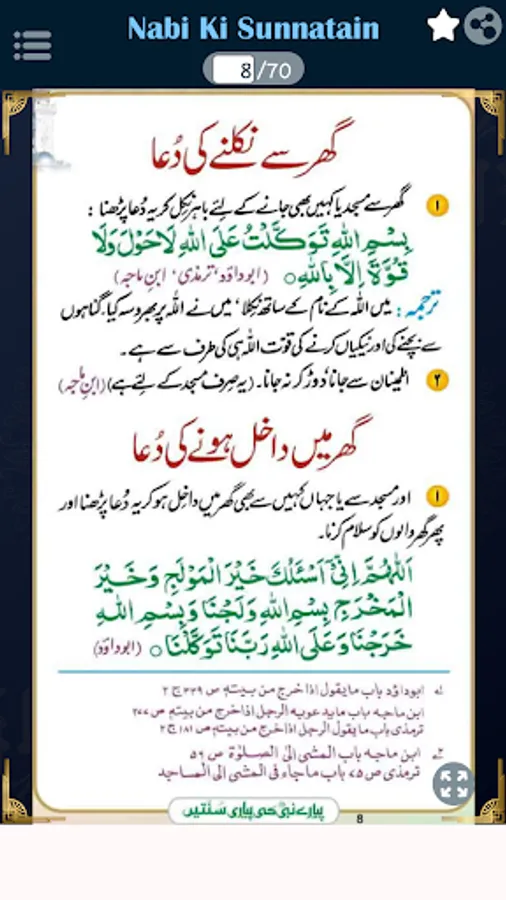 Nabi Ki Sunnatain
8/70
گھر سے نکلنے کی دُعا
۱ گھر سے مسجد یا کہیں بھی جانے کے لئے باہر نکل کر یہ دُعا پڑھنا :
بِسْمِ اللّٰهِ تَوَكَّلْتُ عَلَى اللّٰهِ لَا حَوْلَ وَلَا
قُوَّةَ اِلَّا بِاللّٰهِ ○ (ابوداؤد، ترمذی، ابن ماجہ)
ترجمہ: میں اللہ کے نام کے ساتھ نکلا، میں نے اللہ پر بھروسہ کیا۔ گناہوں
سے بچنے کی اور نیکیاں کرنے کی قوت اللہ ہی کی طرف سے ہے۔
۲ اطمینان سے جانا، دوڑ کر نہ جانا۔ (یہ صرف مسجد کے لئے ہے) (ابن ماجہ)
گھر میں داخل ہونے کی دُعا
۱ اور مسجد سے یا جہاں کہیں سے بھی گھر میں داخل ہو کر یہ دُعا پڑھنا اور
پھر گھر والوں کو سلام کرنا۔
اَللّٰهُمَّ اِنِّیْٓ اَسْئَلُكَ خَيْرَ الْمَوْلَجِ وَخَيْرَ
الْمَخْرَجِ بِسْمِ اللّٰهِ وَلَجْنَا وَبِسْمِ اللّٰهِ
خَرَجْنَا وَعَلَى اللّٰهِ رَبِّنَا تَوَكَّلْنَا ○ (ابوداؤد)
۱ ابوداؤد باب مايقول اذا خرج من بيته ص ۳۳۹ ج ۲
ابن ماجه باب مايدعوبه الرجل اذاخرج من بيته ص ۲۷۷
ترمذی باب مايقول الرجل اذاخرج من بيته ص ۱۸۱ ج ۲
۲ ابن ماجه باب المشی الی الصلوٰة ص ۵۶
ترمذی ص ۷۵ باب ماجاء فی المشی الی المساجد
پیارے نبیؐ کی پیاری سُنتیں
8